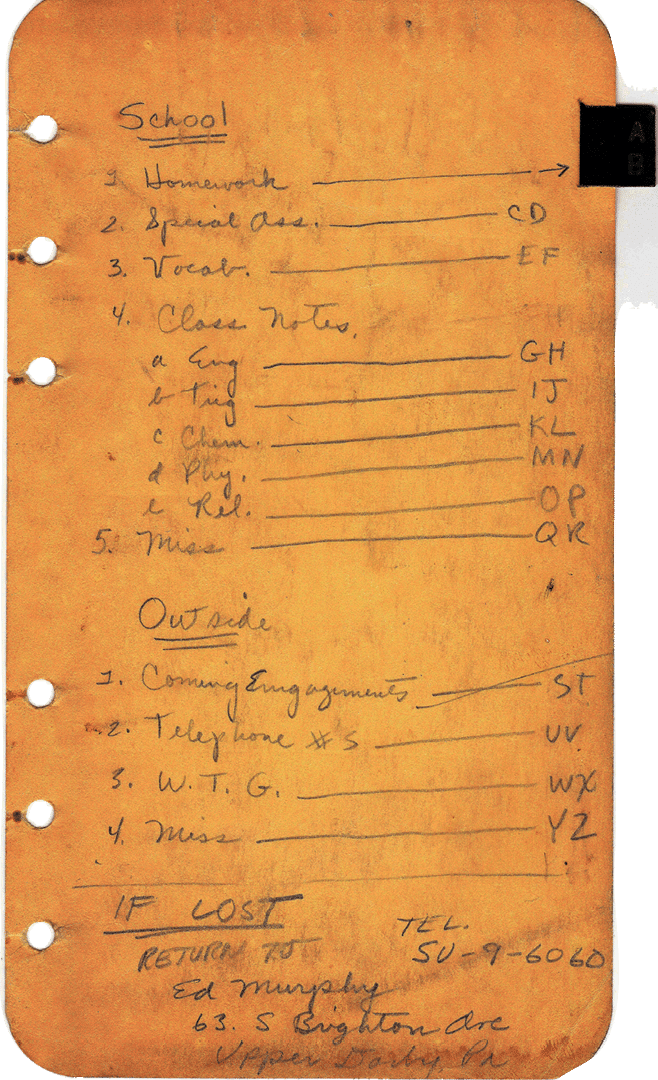 School
A
B
1 Homework
2. Special Ass. CD
3. Vocab. EF
4. Class Notes.
a Eng GH
b Trig IJ
c Chem. KL
d Phy. MN
e Rel. OP
5. Miss QR
Outside
1. Coming Emgagements ST
2. Telephone #S UV
3. W. T. G. WX
4. Miss YZ
IF LOST
TEL.
RETURN TO SU-9-6060
Ed Murphy
63. S Brighton Ave
Upper Darby, Pa